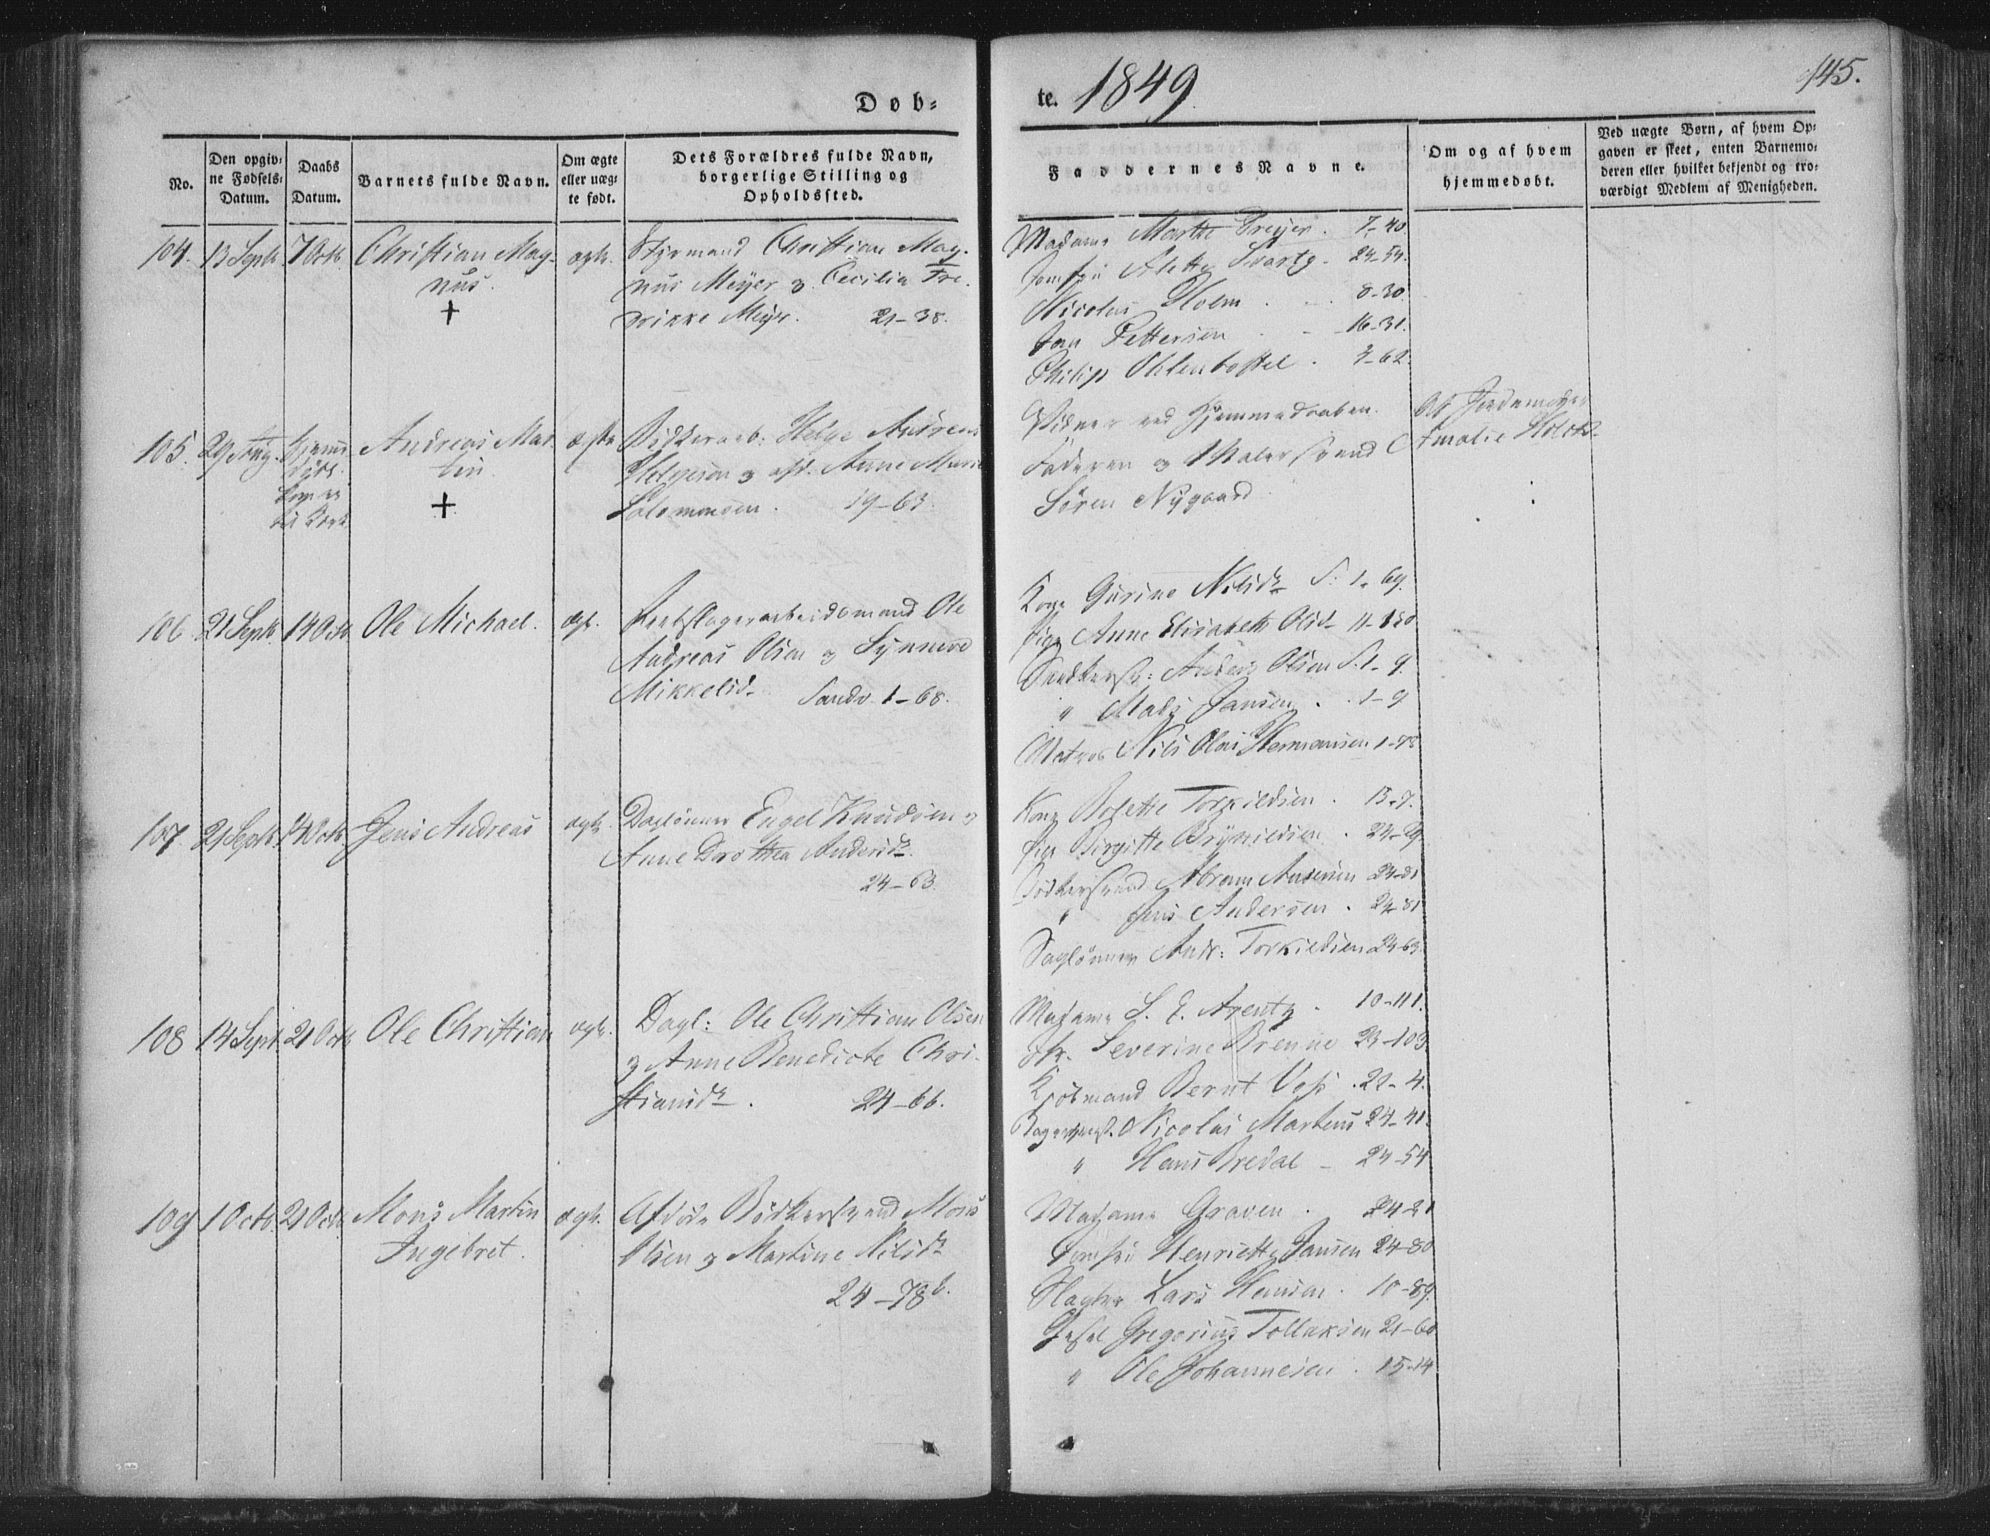 Døb=
te. 1849.
145.
No.
Den opgiv=
ne Fødsels=
Datum.
Daabs
Datum.
Barnets fulde Navn.
Om ægte
eller uæg=
te født.
Dets Forældres fulde Navn,
borgerlige Stilling og
Opholdssted.
Faddernes Navne.
Om og af hvem
hjemmedøbt.
Ved uægte Børn, af hvem Op=
gaven er skeet, enten Barnemo=
deren eller hvilket bekjendt og tro=
værdigt Medlem af Menigheden.
104. 13 Septb. 7 Octb. Christian Mag-
nus.
+
ægte. Styrmand Christian Mag-
nus Meyer og Cecilia Fre-
drikke Meyer. 21-38.
Madame Marthe Preyer. 7-40
Jomfru Alette Svartz. 24-54
Nicolai Holm . 8-30
Jan Pettersen - 16-31.
Philip Ohlenbostel . 3-62.
105. 29 Aug. Hjemme
døbt.
+
Andreas Mar
tin
ægte Bødkerarb: Helge Andreas
Helgesen og afd. Anne Marie
Salomonsen. 19-63.
Vidner ved Hjemmedaaben.
Faderen og Malersvend C
Søren Nygaard
Amalie Holck
106 21 Septb. 14 Octb. Ole Michael. ægte. Reebslagerarbeidsmand Ole
Andreas Olsen og Synneve
Mikkelsd. Sandv. 1-68.
Kone Gurine Nilsdr S. 1-69.
Pige Anne Elisabeth Olsd. 11-130
Anders Olsen S. 1-9.
" Mads Jansen . 1-9
Matros Nils Olai Hermansen 1-78
107 21 Septb. 14 Octb. Jens Andreas ægte. Daglønner Engel Knudsen og
Anne Dorothea Andersdr.
24-63.
Kone Bolette Torkildsen . 13-7.
Pige Birgitte Brynildsen . 24-29
Bødkersvend Abram Andersen 24-81
" Jens Andersen . 24-81
Daglønner Andr: Torkildsen 24-63
108 14 Sept. 21 Octb. Ole Christian ægte. Dagl: Ole Christian Olsen
og Anne Benedicte Chri-
stiansdr . 24-66.
Madame S. E. Arentz . 10-111.
Jfr. Severine Brenne 23-103.
Kjøbmand Bernt Voss . 22-4.
Nicolai Martens 24-41.
" Hans Bredal - 24-54
109 1 Octb. 21 Octb. Mons Martin
Ingebret.
ægte. Afdøde Bødkersvend Mons
Olsen og Martine Nilsdr
24-78b.
Madame Graven . 24-21
Jomfru Henriette Jansen 24-80
Slagter Lars Hansen . 10-89.
Gesel Gregorius Tollaksen 21-60
" Ole Johannesen . 15-14